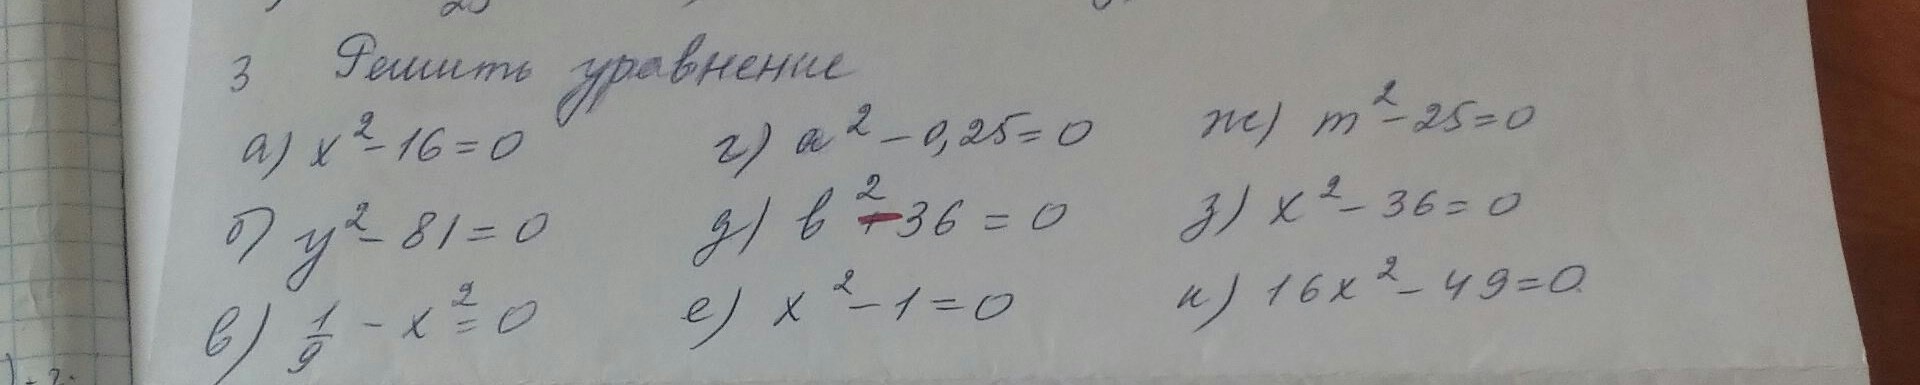 3 Решить уравнение
а) x² - 16 = 0 г) a² - 0,25 = 0 ж) m² - 25 = 0
б) y² - 81 = 0 д) b² - 36 = 0 з) x² - 36 = 0
в) 1/9 - x² = 0 е) x² - 1 = 0 и) 16x² - 49 = 0